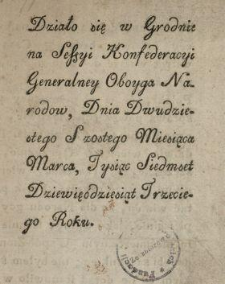 Działo się w Grodnie
na Sessyi Konfederacyi
Generalney Oboyga Na-
rodow, Dnia Dwudzie-
stego Szostego Miesiąca
Marca, Tysiąc Siedmset
Dziewięćdziesiąt Trzecie-
go Roku.